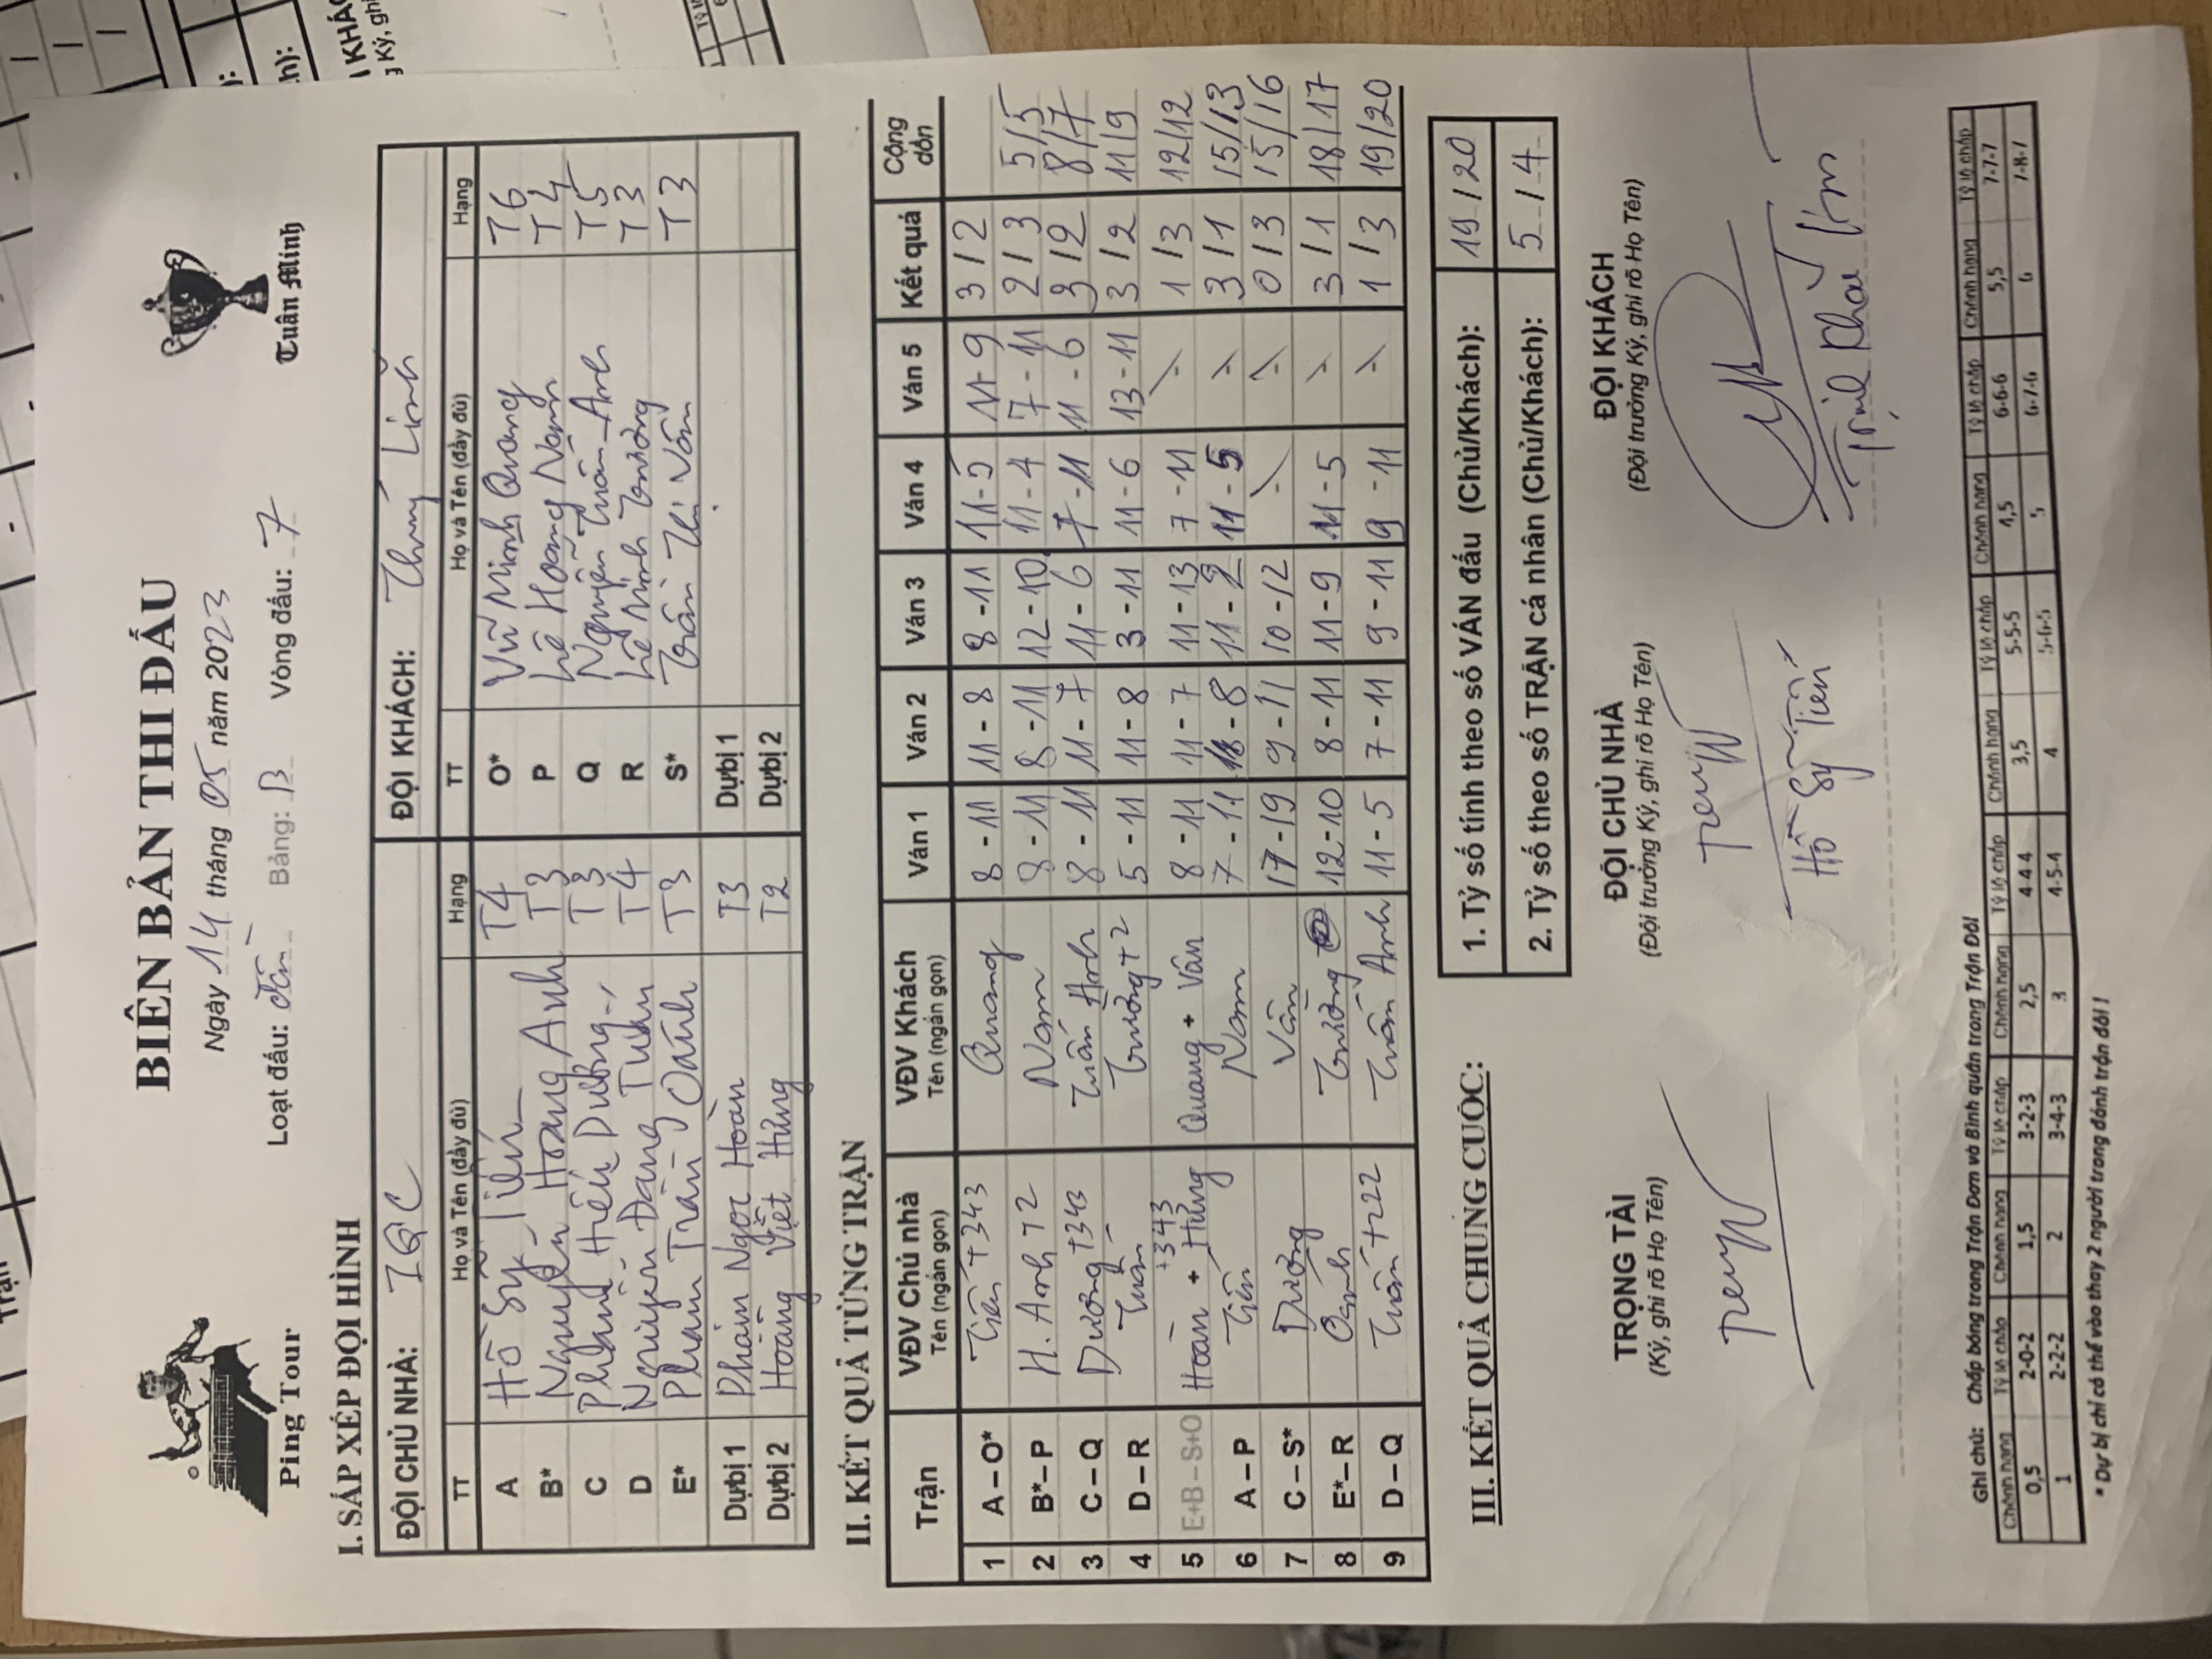 BIÊN BẢN THI ĐẤU
Ngày 14 tháng 05 năm 2023
Loạt đấu: Bảng: B Vòng đấu: 7
Ping Tour
Tuân Minh
I. SẮP XẾP ĐỘI HÌNH
ĐỘI CHỦ NHÀ: IQC ĐỘI KHÁCH: Thuỳ Linh
TT Họ và Tên (đầy đủ) Hạng TT Họ và Tên (đầy đủ) Hạng
A Hồ Sỹ Tiến T4 O* Vũ Minh Quang T6
B* Nguyễn Hoàng Anh T3 P Lê Hoàng Nam T4
C Phùng Hiếu Dương T3 Q Nguyễn Tuấn Anh T5
D Nguyễn Đăng Tuấn T4 R Lê Minh Trường T3
E* Phạm Trần Oánh T3 S* Trần Thị Vân T3
Dự bị 1 Phạm Ngọc Hoàn T3 Dự bị 1
Dự bị 2 Hoàng Việt Hùng T2 Dự bị 2
II. KẾT QUẢ TỪNG TRẬN
Trận VĐV Chủ nhà Tên (ngắn gọn) VĐV Khách Tên (ngắn gọn) Ván 1 Ván 2 Ván 3 Ván 4 Ván 5 Kết quả Cộng dồn
1 A – O* Tiến +343 Quang 8 - 11 11 - 8 8 - 11 11 - 5 11 - 9 3 / 2
2 B* – P H. Anh +2 Nam 8 - 11 8 - 11 12 - 10 11 - 4 7 - 11 2 / 3 5/5
3 C – Q Dương +343 Tuấn Anh 8 - 11 11 - 7 11 - 6 7 - 11 11 - 6 3 / 2 8/7
4 D – R Tuấn Trường +2 5 - 11 11 - 8 3 - 11 11 - 6 13 - 11 3 / 2 11/9
5 E+B – S+O Hoàn + Hùng +343 Quang + Vân 8 - 11 11 - 7 11 - 13 7 - 11 - 1 / 3 12/12
6 A – P Tiến Nam 7 - 11 - 8 11 - 2 11 - 5 - 3 / 1 15/13
7 C – S* Dương Vân 17 - 19 9 - 11 10 - 12 - - 0 / 3 15/16
8 E* – R Oánh Trường 12 - 10 8 - 11 11 - 9 11 - 5 - 3 / 1 18/17
9 D – Q Tuấn +222 Tuấn Anh 11 - 5 7 - 11 9 - 11 9 - 11 - 1 / 3 19/20
III. KẾT QUẢ CHUNG CUỘC:
1. Tỷ số tính theo số VÁN đấu (Chủ/Khách): 19 / 20
2. Tỷ số theo số TRẬN cá nhân (Chủ/Khách): 5 / 4
TRỌNG TÀI ĐỘI CHỦ NHÀ ĐỘI KHÁCH
(Ký, ghi rõ Họ Tên) (Đội trưởng Ký, ghi rõ Họ Tên) (Đội trưởng Ký, ghi rõ Họ Tên)
Hồ Sỹ Tiến
Ghi chú: Chấp bóng trong Trận Đơn và Bình quân trong Trận Đôi
Chênh hạng Tỷ lệ chấp Chênh hạng Tỷ lệ chấp Chênh hạng Tỷ lệ chấp Chênh hạng Tỷ lệ chấp Chênh hạng Tỷ lệ chấp Chênh hạng Tỷ lệ chấp
0,5 2-0-2 1,5 3-2-3 2,5 4-4-4 3,5 5-5-5 4,5 6-6-6 5,5 7-7-7
1 2-2-2 2 3-4-3 3 4-5-4 4 5-6-5 5 6-7-6 6 7-8-7
* Dự bị chỉ có thể vào thay 2 người trong đánh trận đôi !